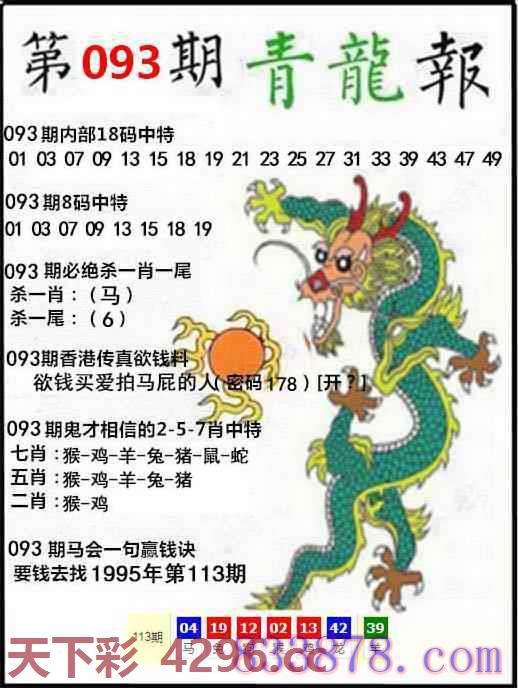 第093期 青龍報
093期内部18码中特
01 03 07 09 13 15 18 19 21 23 25 27 31 33 39 43 47 49
093期8码中特
01 03 07 09 13 15 18 19
093期必绝杀一肖一尾
杀一肖：（马）
杀一尾：（6）
093期香港传真欲钱料
欲钱买爱拍马屁的人（密码178）[开？]
093期鬼才相信的2-5-7肖中特
七肖：猴-鸡-羊-兔-猪-鼠-蛇
五肖：猴-鸡-羊-兔-猪
二肖：猴-鸡
093期马会一句赢钱诀
要钱去找1995年第113期
113期 04 19 12 02 13 42 39
马 兔 猴 鸡 龙 羊
天下彩 4296.cc